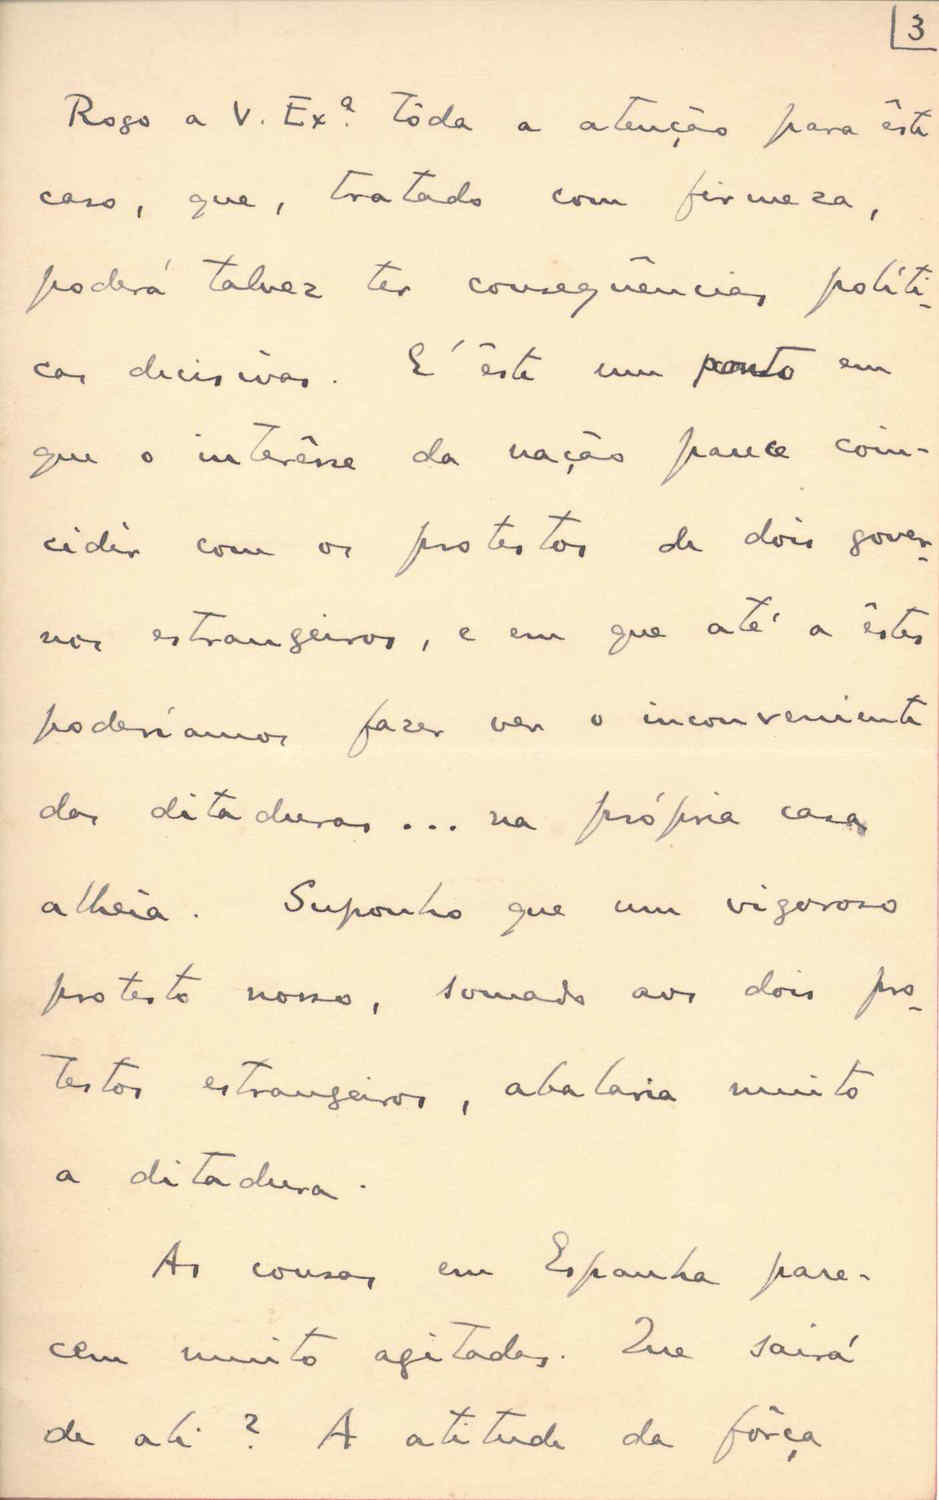 3
Rogo a V. Exª. tôda a atenção para êste
caso, que, tratado com firmeza,
poderá talvez ter conseqüências políti-
cas decisivas. É êste um ponto em
que o interêsse da nação parece coin-
cidir com os protestos de dois gover-
nos estrangeiros, e em que até a êstes
poderíamos fazer ver o inconveniente
das ditaduras... na própria casa
alheia. Suponho que um vigoroso
protesto nosso, somado aos dois pro-
testos estrangeiros, abalaria muito
a ditadura.
As cousas em Espanha pare-
cem muito agitadas. Que sairá
de ali? A atitude da fôrça